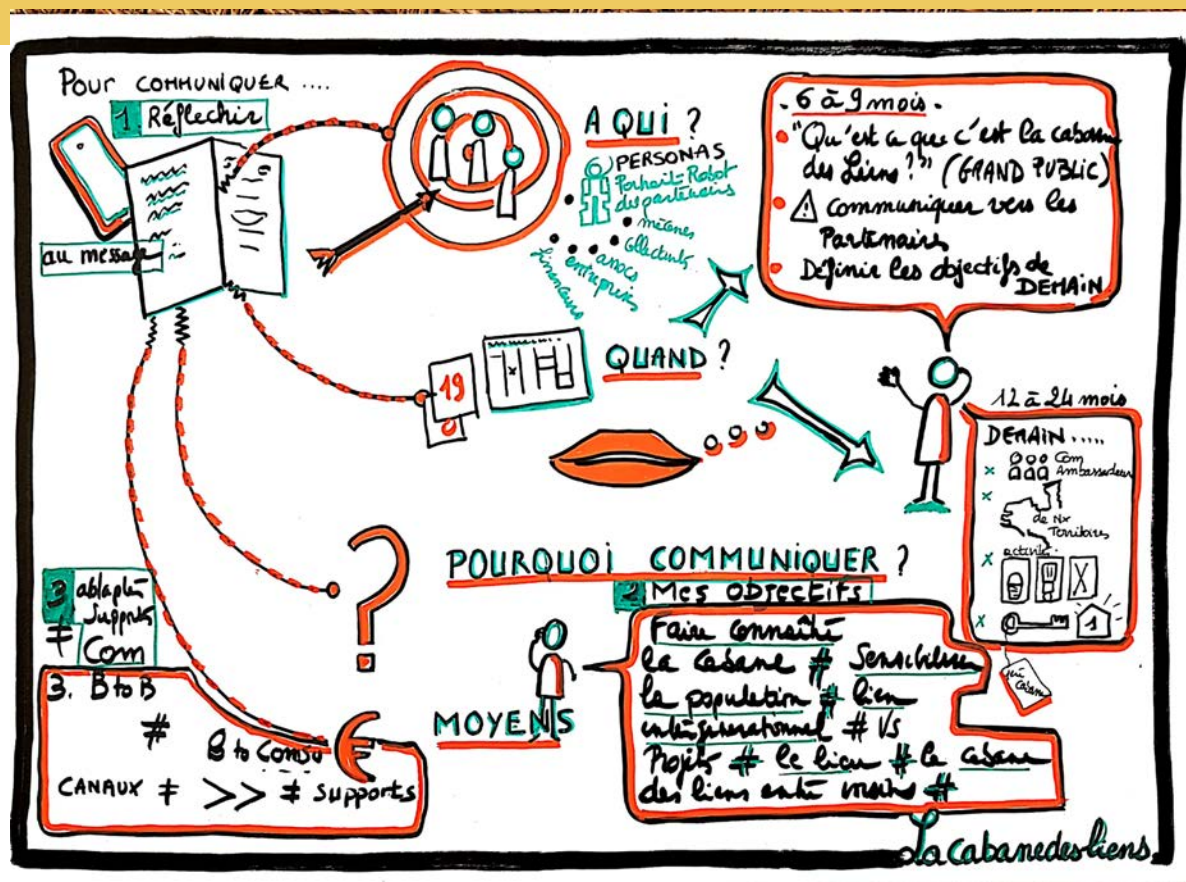 Pour COMMUNIQUER ....
1 Réflechir
au message
A QUI ?
6 PERSONAS
Portrait-Robot
des partenaires
mécènes
collectivités
assocs
entreprises
financeurs
QUAND ?
19
- 6 à 9 mois -
"Qu'est ce que c'est la cabane
des Liens ?" (GRAND PUBLIC)
communiquer vers les
Partenaires
Définir les objectifs de
DEMAIN
12 à 24 mois
DEMAIN .....
x Com
Ambassadeur
x
de Nx
Territoires
x activités
x 1
POURQUOI COMMUNIQUER ?
2 Mes OBJECTIFS
Faire connaître
la cabane # Sensibiliser
la population # lien
intergénérationnel # Vs
Projets # le lieu # la cabane
des liens entre #
MOYENS
3 adapter
Supports
≠ Com
3. B to B
#
B to Conso
€
CANAUX ≠ >> ≠ supports
La cabane des liens